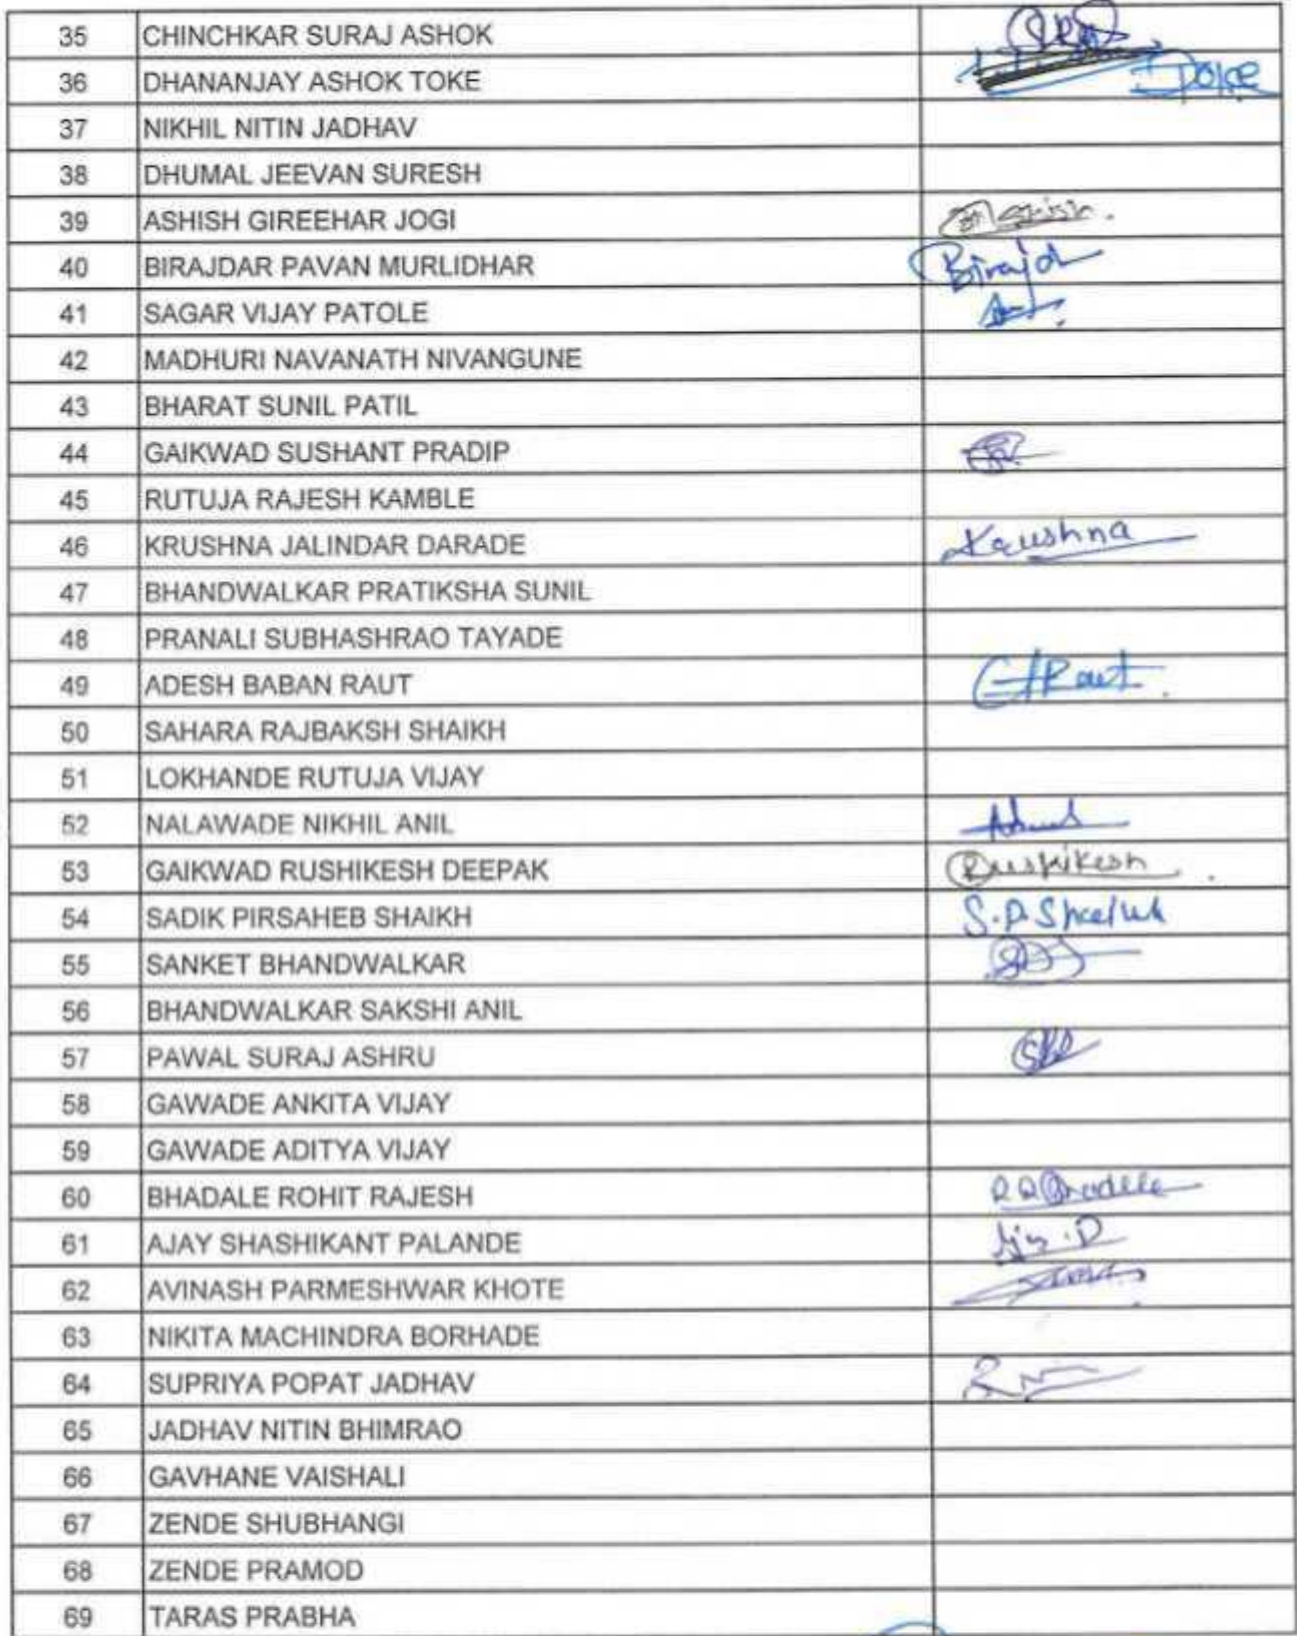 35 CHINCHKAR SURAJ ASHOK
36 DHANANJAY ASHOK TOKE
37 NIKHIL NITIN JADHAV
38 DHUMAL JEEVAN SURESH
39 ASHISH GIREEHAR JOGI
40 BIRAJDAR PAVAN MURLIDHAR Birajd
41 SAGAR VIJAY PATOLE
42 MADHURI NAVANATH NIVANGUNE
43 BHARAT SUNIL PATIL
44 GAIKWAD SUSHANT PRADIP
45 RUTUJA RAJESH KAMBLE
46 KRUSHNA JALINDAR DARADE Krushna
47 BHANDWALKAR PRATIKSHA SUNIL
48 PRANALI SUBHASHRAO TAYADE
49 ADESH BABAN RAUT Raut
50 SAHARA RAJBAKSH SHAIKH
51 LOKHANDE RUTUJA VIJAY
52 NALAWADE NIKHIL ANIL
53 GAIKWAD RUSHIKESH DEEPAK Rushikesh
54 SADIK PIRSAHEB SHAIKH S.P. Shaikh
55 SANKET BHANDWALKAR
56 BHANDWALKAR SAKSHI ANIL
57 PAWAL SURAJ ASHRU
58 GAWADE ANKITA VIJAY
59 GAWADE ADITYA VIJAY
60 BHADALE ROHIT RAJESH
61 AJAY SHASHIKANT PALANDE
62 AVINASH PARMESHWAR KHOTE
63 NIKITA MACHINDRA BORHADE
64 SUPRIYA POPAT JADHAV
65 JADHAV NITIN BHIMRAO
66 GAVHANE VAISHALI
67 ZENDE SHUBHANGI
68 ZENDE PRAMOD
69 TARAS PRABHA